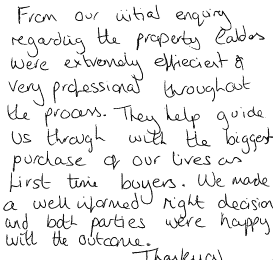 From our initial enquiry
regarding the property Caldos
were extremely effiecient &
very professional throughout
the process. They help guide
us through with the biggest
purchase of our lives as
first time buyers. We made
a well informed right decision
and both parties were happy
with the outcome.
Thankyou